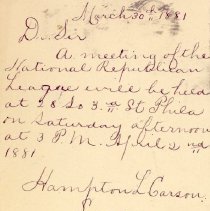 March 30th 1881
D. Sir
A meeting of the
National Republican
League will be held
at 28 So. 3rd St Phila
on Saturday afternoon
at 3 P.M. April 2nd
1881.
Hampton L Carson.